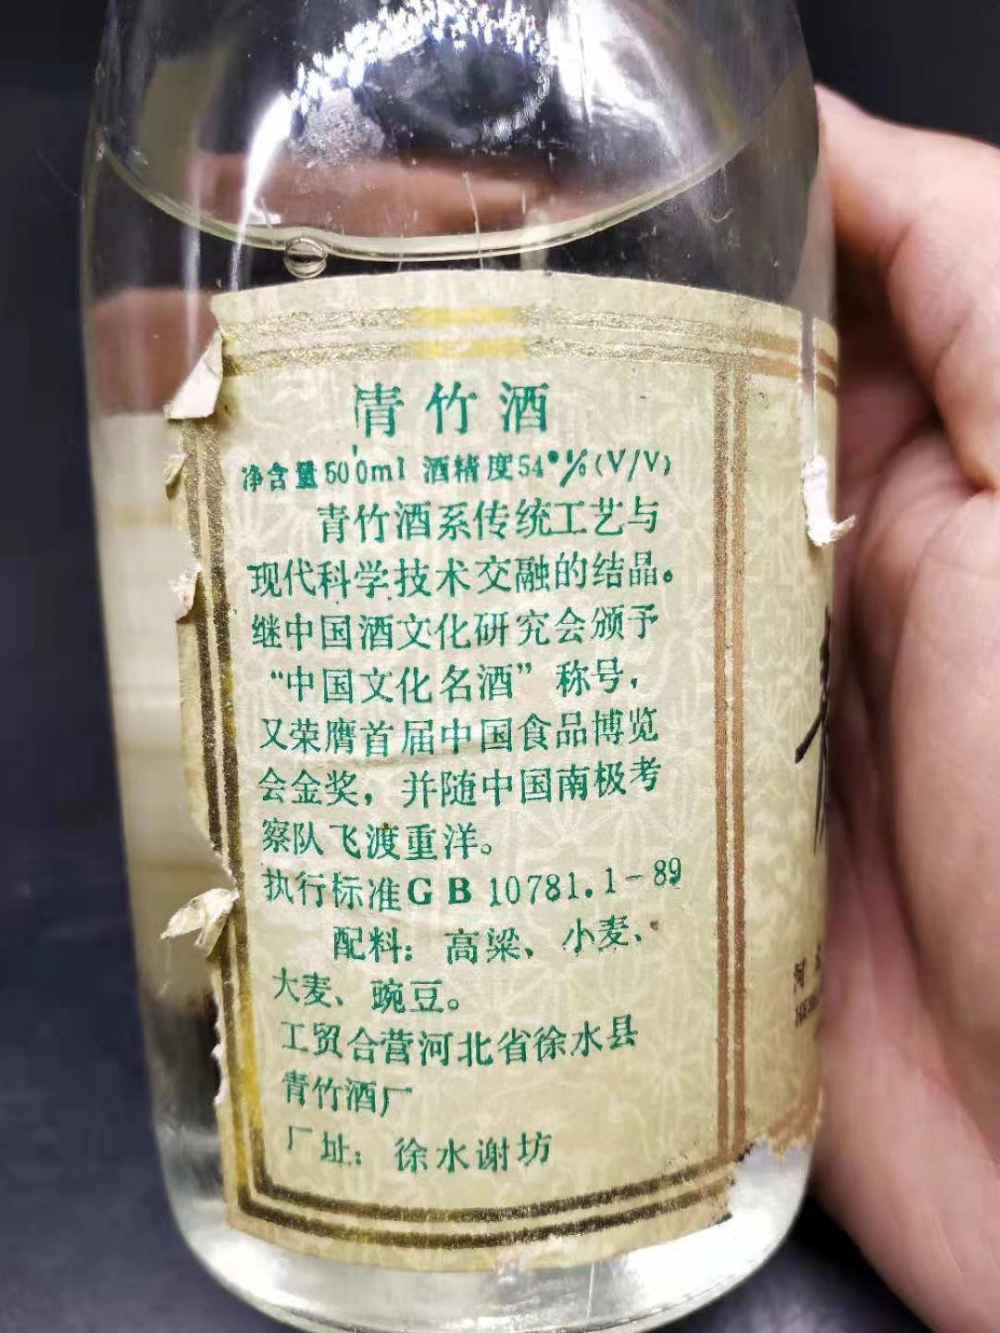 青竹酒
净含量500ml 酒精度54°%(V/V)
青竹酒系传统工艺与
现代科学技术交融的结晶。
继中国酒文化研究会颁予
“中国文化名酒”称号，
又荣膺首届中国食品博览
会金奖，并随中国南极考
察队飞渡重洋。
执行标准GB 10781.1-89
配料：高粱、小麦、
大麦、豌豆。
工贸合营河北省徐水县
青竹酒厂
厂址：徐水谢坊
河